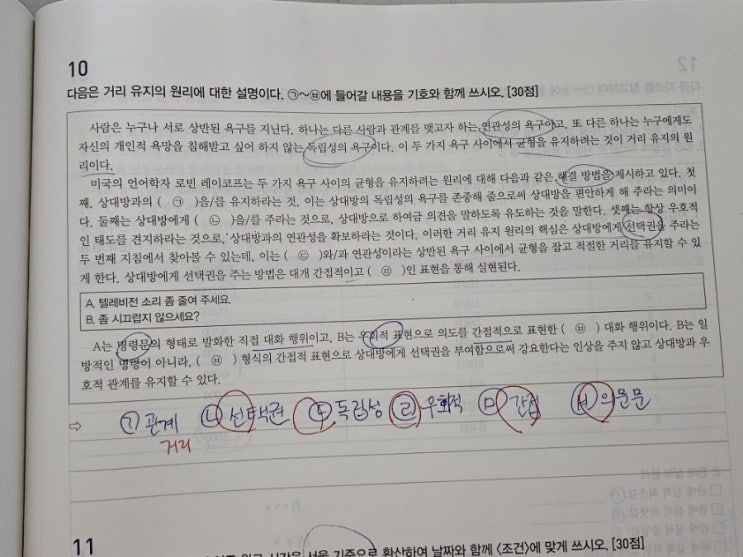 10
다음은 거리 유지의 원리에 대한 설명이다. ㉠~㉥에 들어갈 내용을 기호와 함께 쓰시오. [30점]
사람은 누구나 서로 상반된 욕구를 지닌다. 하나는 다른 사람과 관계를 맺고자 하는 연관성의 욕구이고, 또 다른 하나는 누구에게도
자신의 개인적 욕망을 침해받고 싶어 하지 않는 독립성의 욕구이다. 이 두 가지 욕구 사이에서 균형을 유지하려는 것이 거리 유지의 원
리이다.
미국의 언어학자 로빈 레이코프는 두 가지 욕구 사이의 균형을 유지하려는 원리에 대해 다음과 같은 해결 방법을 제시하고 있다. 첫
째, 상대방과의 ( ㉠ )을/를 유지하라는 것, 이는 상대방의 독립성의 욕구를 존중해 줌으로써 상대방을 편안하게 해 주라는 의미이
다. 둘째는 상대방에게 ( ㉡ )을/를 주라는 것으로, 상대방으로 하여금 의견을 말하도록 유도하는 것을 말한다. 셋째는 항상 우호적
인 태도를 견지하라는 것으로, 상대방과의 연관성을 확보하라는 것이다. 이러한 거리 유지 원리의 핵심은 상대방에게 선택권을 주라는
두 번째 지침에서 찾아볼 수 있는데, 이는 ( ㉢ )와/과 연관성이라는 상반된 욕구 사이에서 균형을 잡고 적절한 거리를 유지할 수 있
게 한다. 상대방에게 선택권을 주는 방법은 대개 간접적이고 ( ㉣ )인 표현을 통해 실현된다.
A. 텔레비전 소리 좀 줄여 주세요.
B. 좀 시끄럽지 않으세요?
A는 명령문의 형태로 발화한 직접 대화 행위이고, B는 우회적 표현으로 의도를 간접적으로 표현한 ( ㉤ ) 대화 행위이다. B는 일
방적인 명령이 아니라, ( ㉥ ) 형식의 간접적 표현으로 상대방에게 선택권을 부여함으로써 강요한다는 인상을 주지 않고 상대방과 우
호적 관계를 유지할 수 있다.
⇨ ㉠ 관계 ㉡ 선택권 ㉢ 독립성 ㉣ 우회적 ㉤ 간접 ㉥ 의문문
거리
11
서울 기준으로 환산하여 날짜와 함께 <조건>에 맞게 쓰시오. [30점]